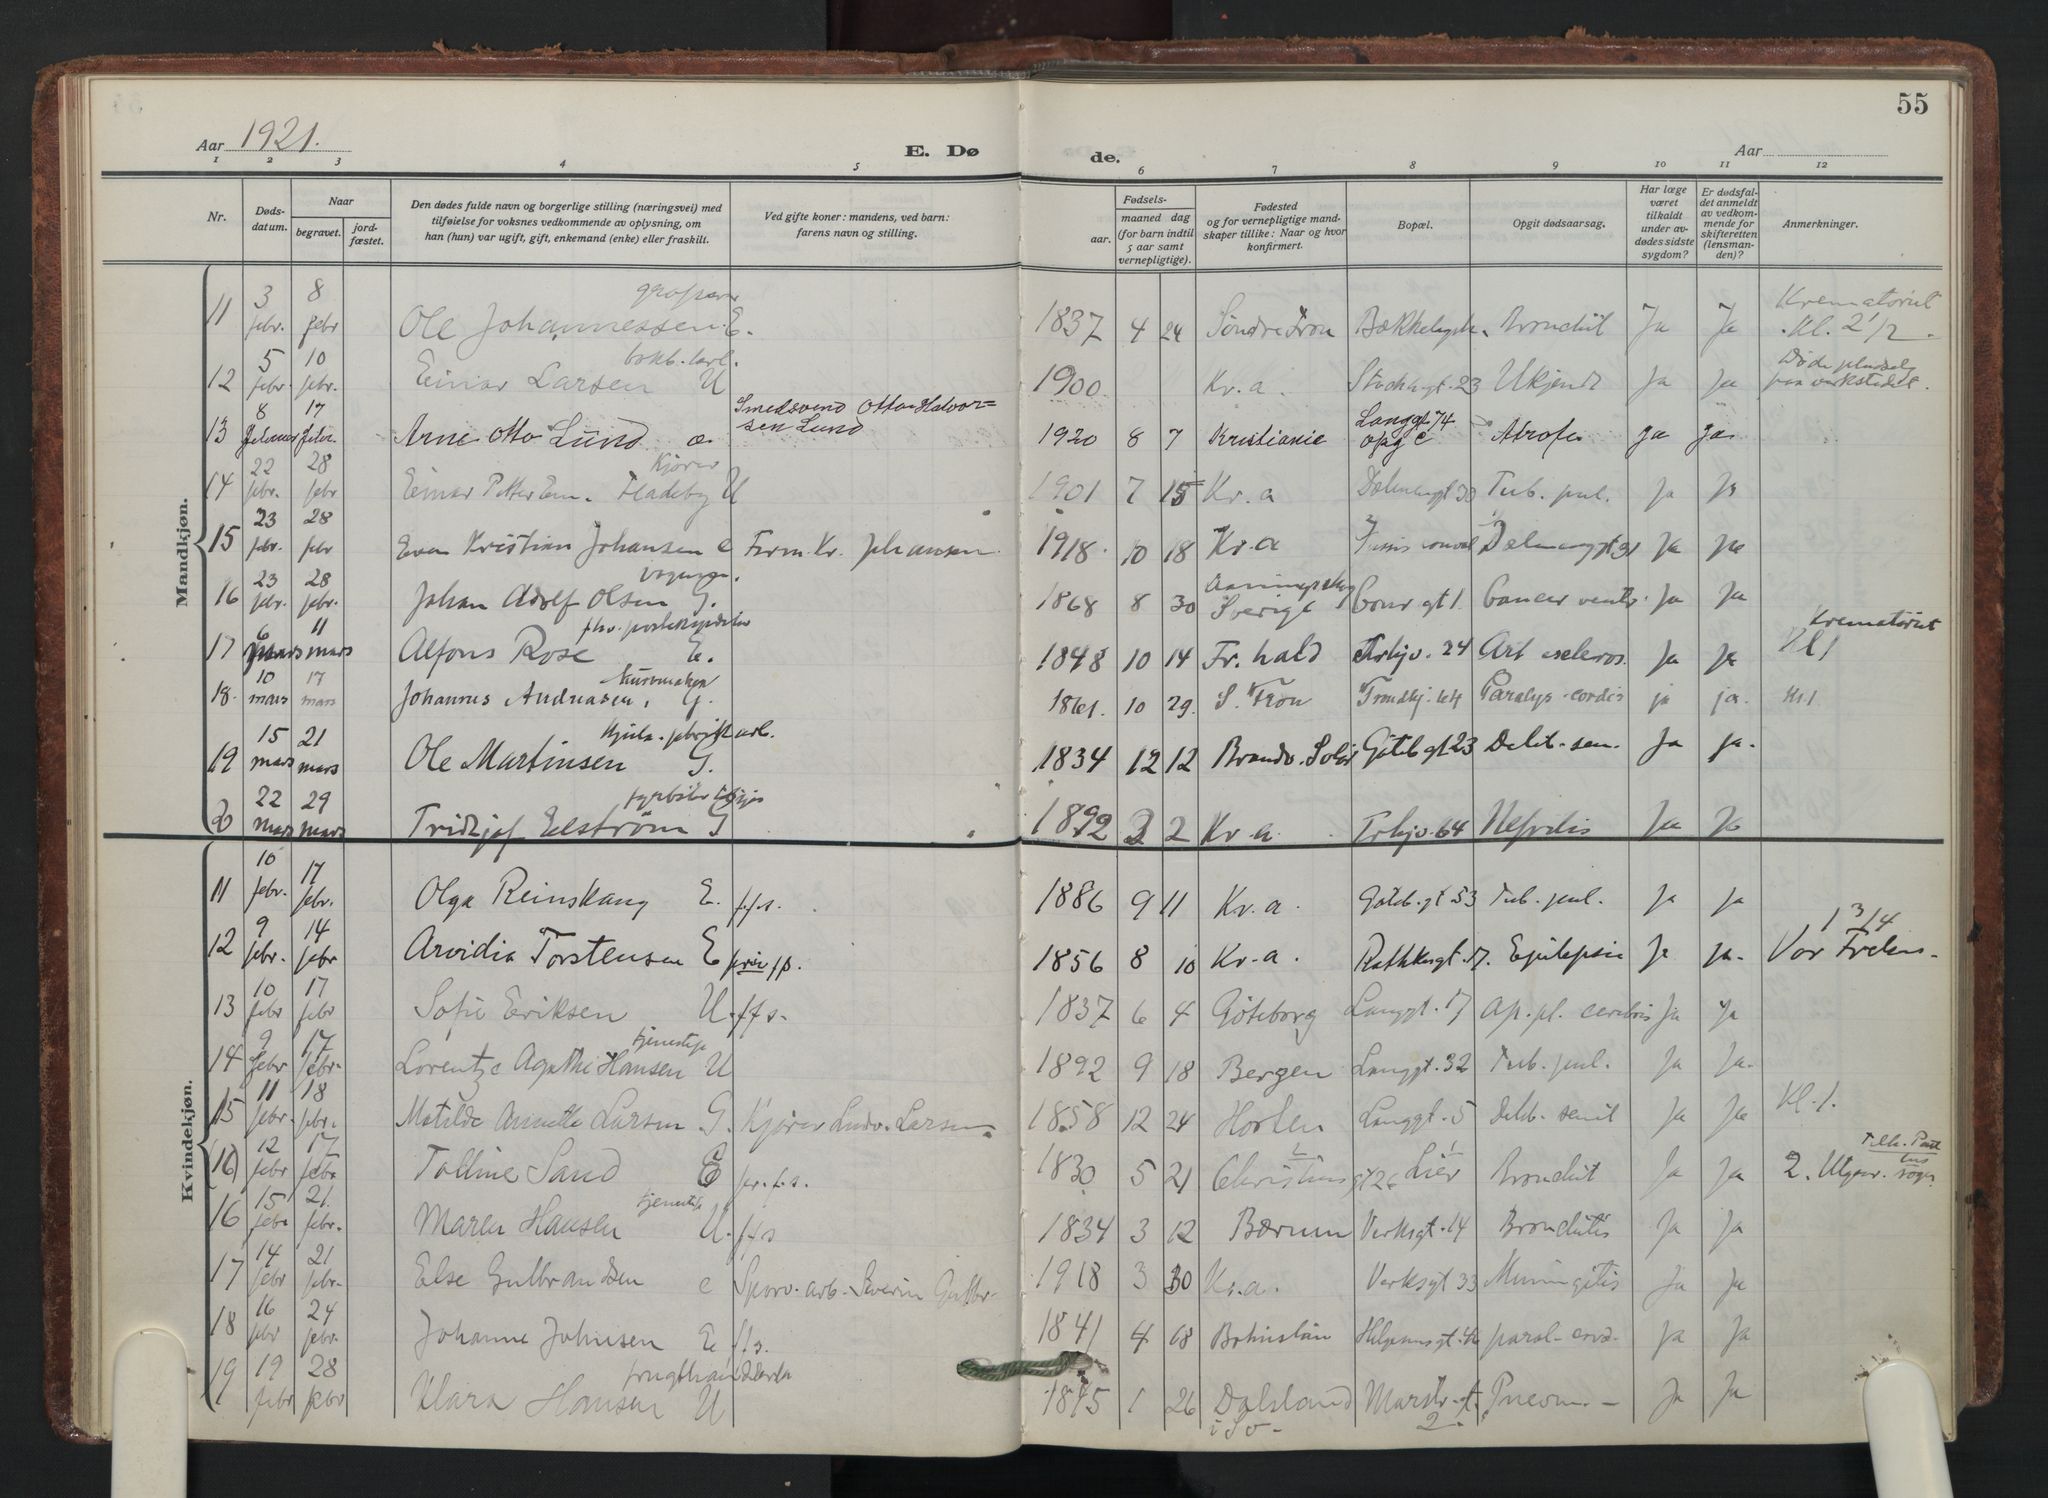 55
Aar 1921.
E. Dø
de.
Aar
1 2 3 4 5 6 7 8 9 10 11 12
Nr.
Døds-
datum.
Naar
begravet.
jord-
fæstet.
Den dødes fulde navn og borgerlige stilling (næringsvei) med
tilføielse for voksnes vedkommende av oplysning, om
han (hun) var ugift, gift, enkemand (enke) eller fraskilt.
Ved gifte koner: mandens, ved barn:
farens navn og stilling.
Fødsels-
aar.
maaned dag
(for barn indtil
5 aar samt
vernepligtige).
Fødested
og for vernepligtige mand-
skaper tillike: Naar og hvor
konfirmert.
Bopæl.
Opgit dødsaarsag.
Har læge
været
tilkaldt
under av-
dødes sidste
sygdom?
Er dødsfal-
det anmeldt
av vedkom-
mende for
skifteretten
(lensman-
den)?
Anmerkninger.
Mandkjøn.
11 3 febr. 8 febr Ole Johannessen. E. 1837 4 24 Søndre Fron Ja Ja Krematoriet Kl. 2 1/2
12 5 febr. 10 febr. Einar Larsen U 1900 Kr.a. 23 Ukjendt Ja Ja Døde
13 8 17 Arne Otto Lund e. Smedsvend Otto Halvor=
sen Lund 1920 8 7 Kristiania Langgt 74 opg c Atrofi ja ja
14 22 febr. 28 febr Kjører Einar Petter Em. Fladeby U 1901 7 15 Kr.a Tub. pul. Ja Ja
15 23 febr. 28 febr Even Kristian Johansen e Form. Kr. Johansen 1918. 10 18 Kr.a Ja Ja
16 23 febr. 28 febr. Johan Adolf Olsen G. 1868 8 30 Sverige gt 1. Cancer ventr. Ja Ja
17 6 mars 11 mars Alfons Rose E. 1848 10 14 Fr.hald 24 Art scleros. Ja Ja Krematoriet Kl 1
18. 10 mars 17 mars Johannes Andreasen, G. 1861. 10 29. S. Fron Trondhj. 64 Paralys. cordis ja ja. Kl. 1
19 15 mars 21 mars Ole Martinsen G. 1834 12 12 Brandv. Solør Göteb gt 23 Debil. sen. Ja ja.
20 22 mars 29 mars Fridtjof Eelström G 1892 2 2 Kr.a. 64 Nefritis Ja Ja
Kvindekjøn.
11 10 febr. 17 febr. Olga Reinskaug E. f.f.s. 1886 9 11 Kr.a. Göteb.gt 53 Tub. pul. Ja Ja
12 9 febr. 14 febr Arvidia Torstensen E priv f.s. 1856 8 10 Kr.a. Rathkesgt. 17. Epilepsie Ja ja. 1 3/4 Vor Frelses
13 10 febr 17 febr Sofie Eriksen U. f.f.s. 1837 6 4 Göteborg Langgt. 17 ap.pl. cerebris Ja Ja
14 9 febr 17 febr. tjenestep Lorentze Agathe Hansen U 1892 9 18 Bergen Langgt. 32 Tub. pul. Ja Ja.
15 11 febr. 18 febr. Matilde Annette Larsen G. Kjører Ludv. Larsen 1858 12 24 Horten Langgt. 5 Debil. senil Ja Ja Kl. 1.
(16) 12 febr 17 febr Talline Sand E pr. f.s. 1830 5 21 Christians gt 26 Lier Bronchit Ja Ja 2.
16 15 febr 21 febr. tjenestep Maren Hansen U. f.f.s 1834 3 12 Bærum Verksgt. 14 Bronchitis Ja Ja
17 14 febr 21 febr. Else Gulbrandsen e Sporv. arb. Severin Gulbr. 1918 3 30 Kr.a. Verksgt 33 Meningitis Ja Ja
18 16 febr 24 febr. Johanne Johnsen E f.f.s. 1841 4 Bohuslän Helgesensgt. Ja Ja
19 19 febr 28 febr Klara Hansen U 1845 1 26 Dalsland i Sv. Pneum. Ja Ja